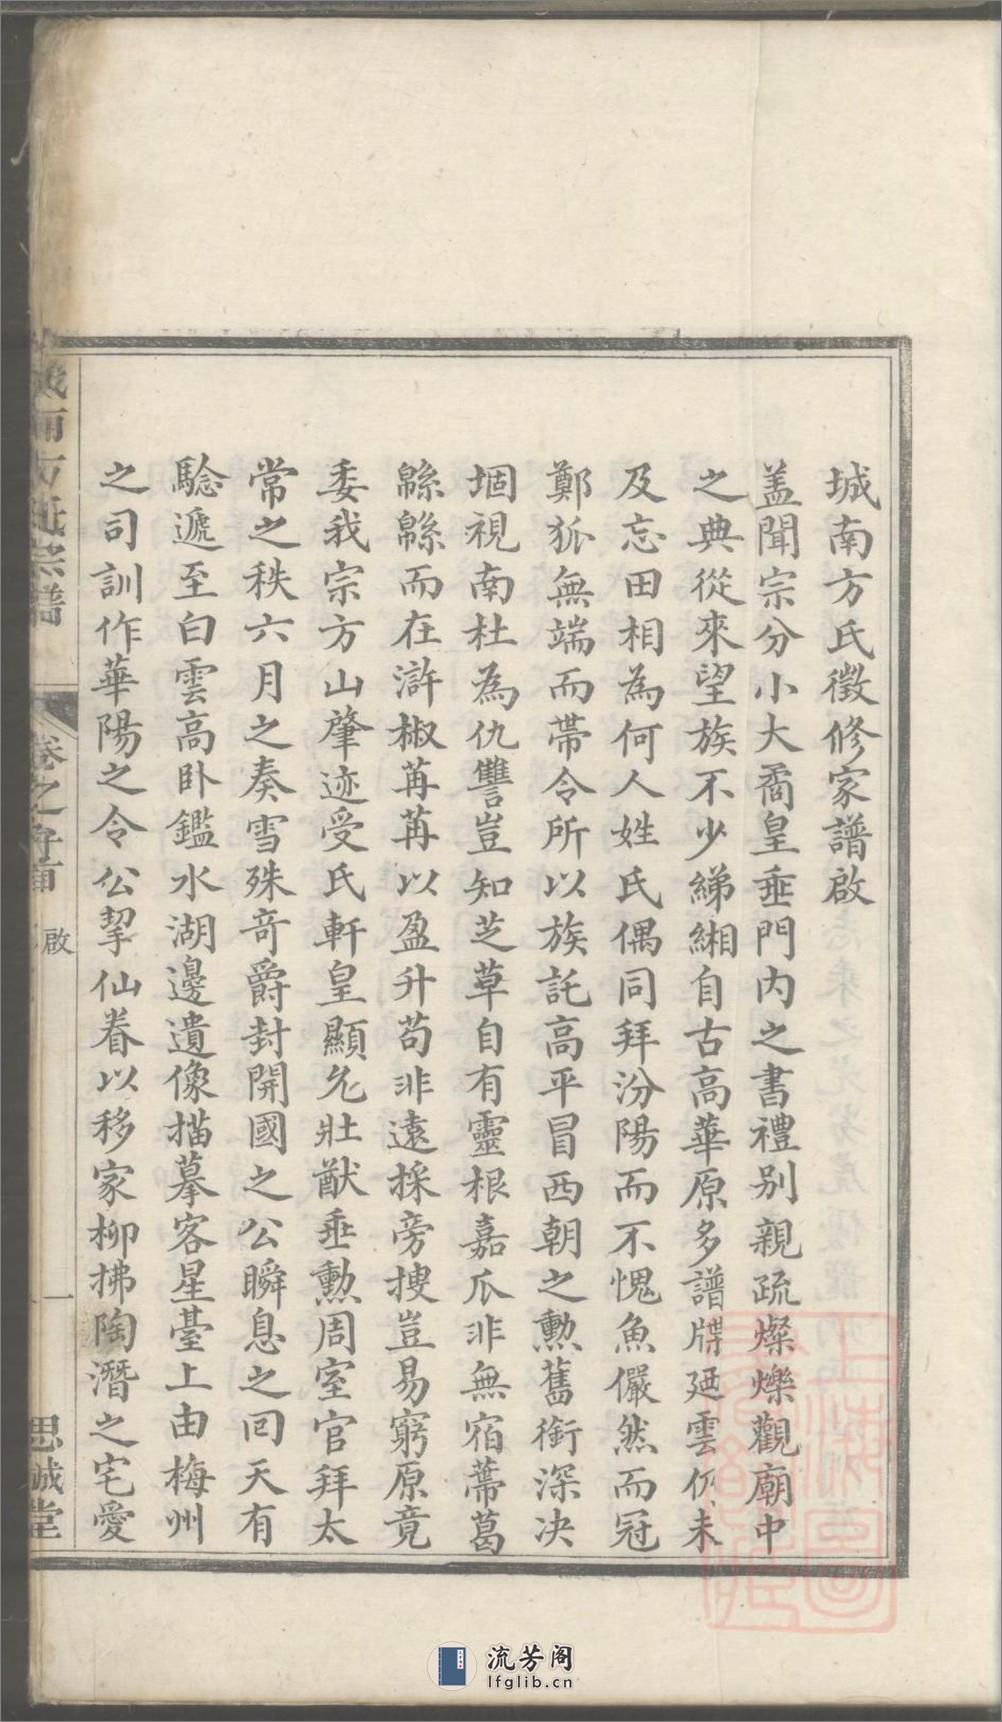 城南方氏徵修家譜啟
盖聞宗分小大矞皇垂門内之書禮别親疏燦爍觀廟中
之典從來望族不少綈緗自古高華原多譜牒廼雲仍未
及忘田相為何人姓氏偶同拜汾陽而不愧魚儼然而冠
鄭狐無端而帶令所以族託高平冒西朝之勲舊銜深决
堌視南杜為仇讐豈知芝草自有靈根嘉瓜非無宿蔕葛
緜緜而在滸椒苒苒以盈升苟非遠採旁搜豈易窮原竟
委我宗方山肇迹受氏軒皇顯允壯猷垂勲周室官拜太
常之秩六月之奏雪殊奇爵封開國之公瞬息之回天有
騐遞至白雲高卧鑑水湖邊遺像描摹客星臺上由梅州
之司訓作華陽之令公挈仙眷以移家柳拂陶潛之宅愛
城南方氏宗譜
卷之弁首
啟
一
思誠堂
流芳阁
lfglib.cn